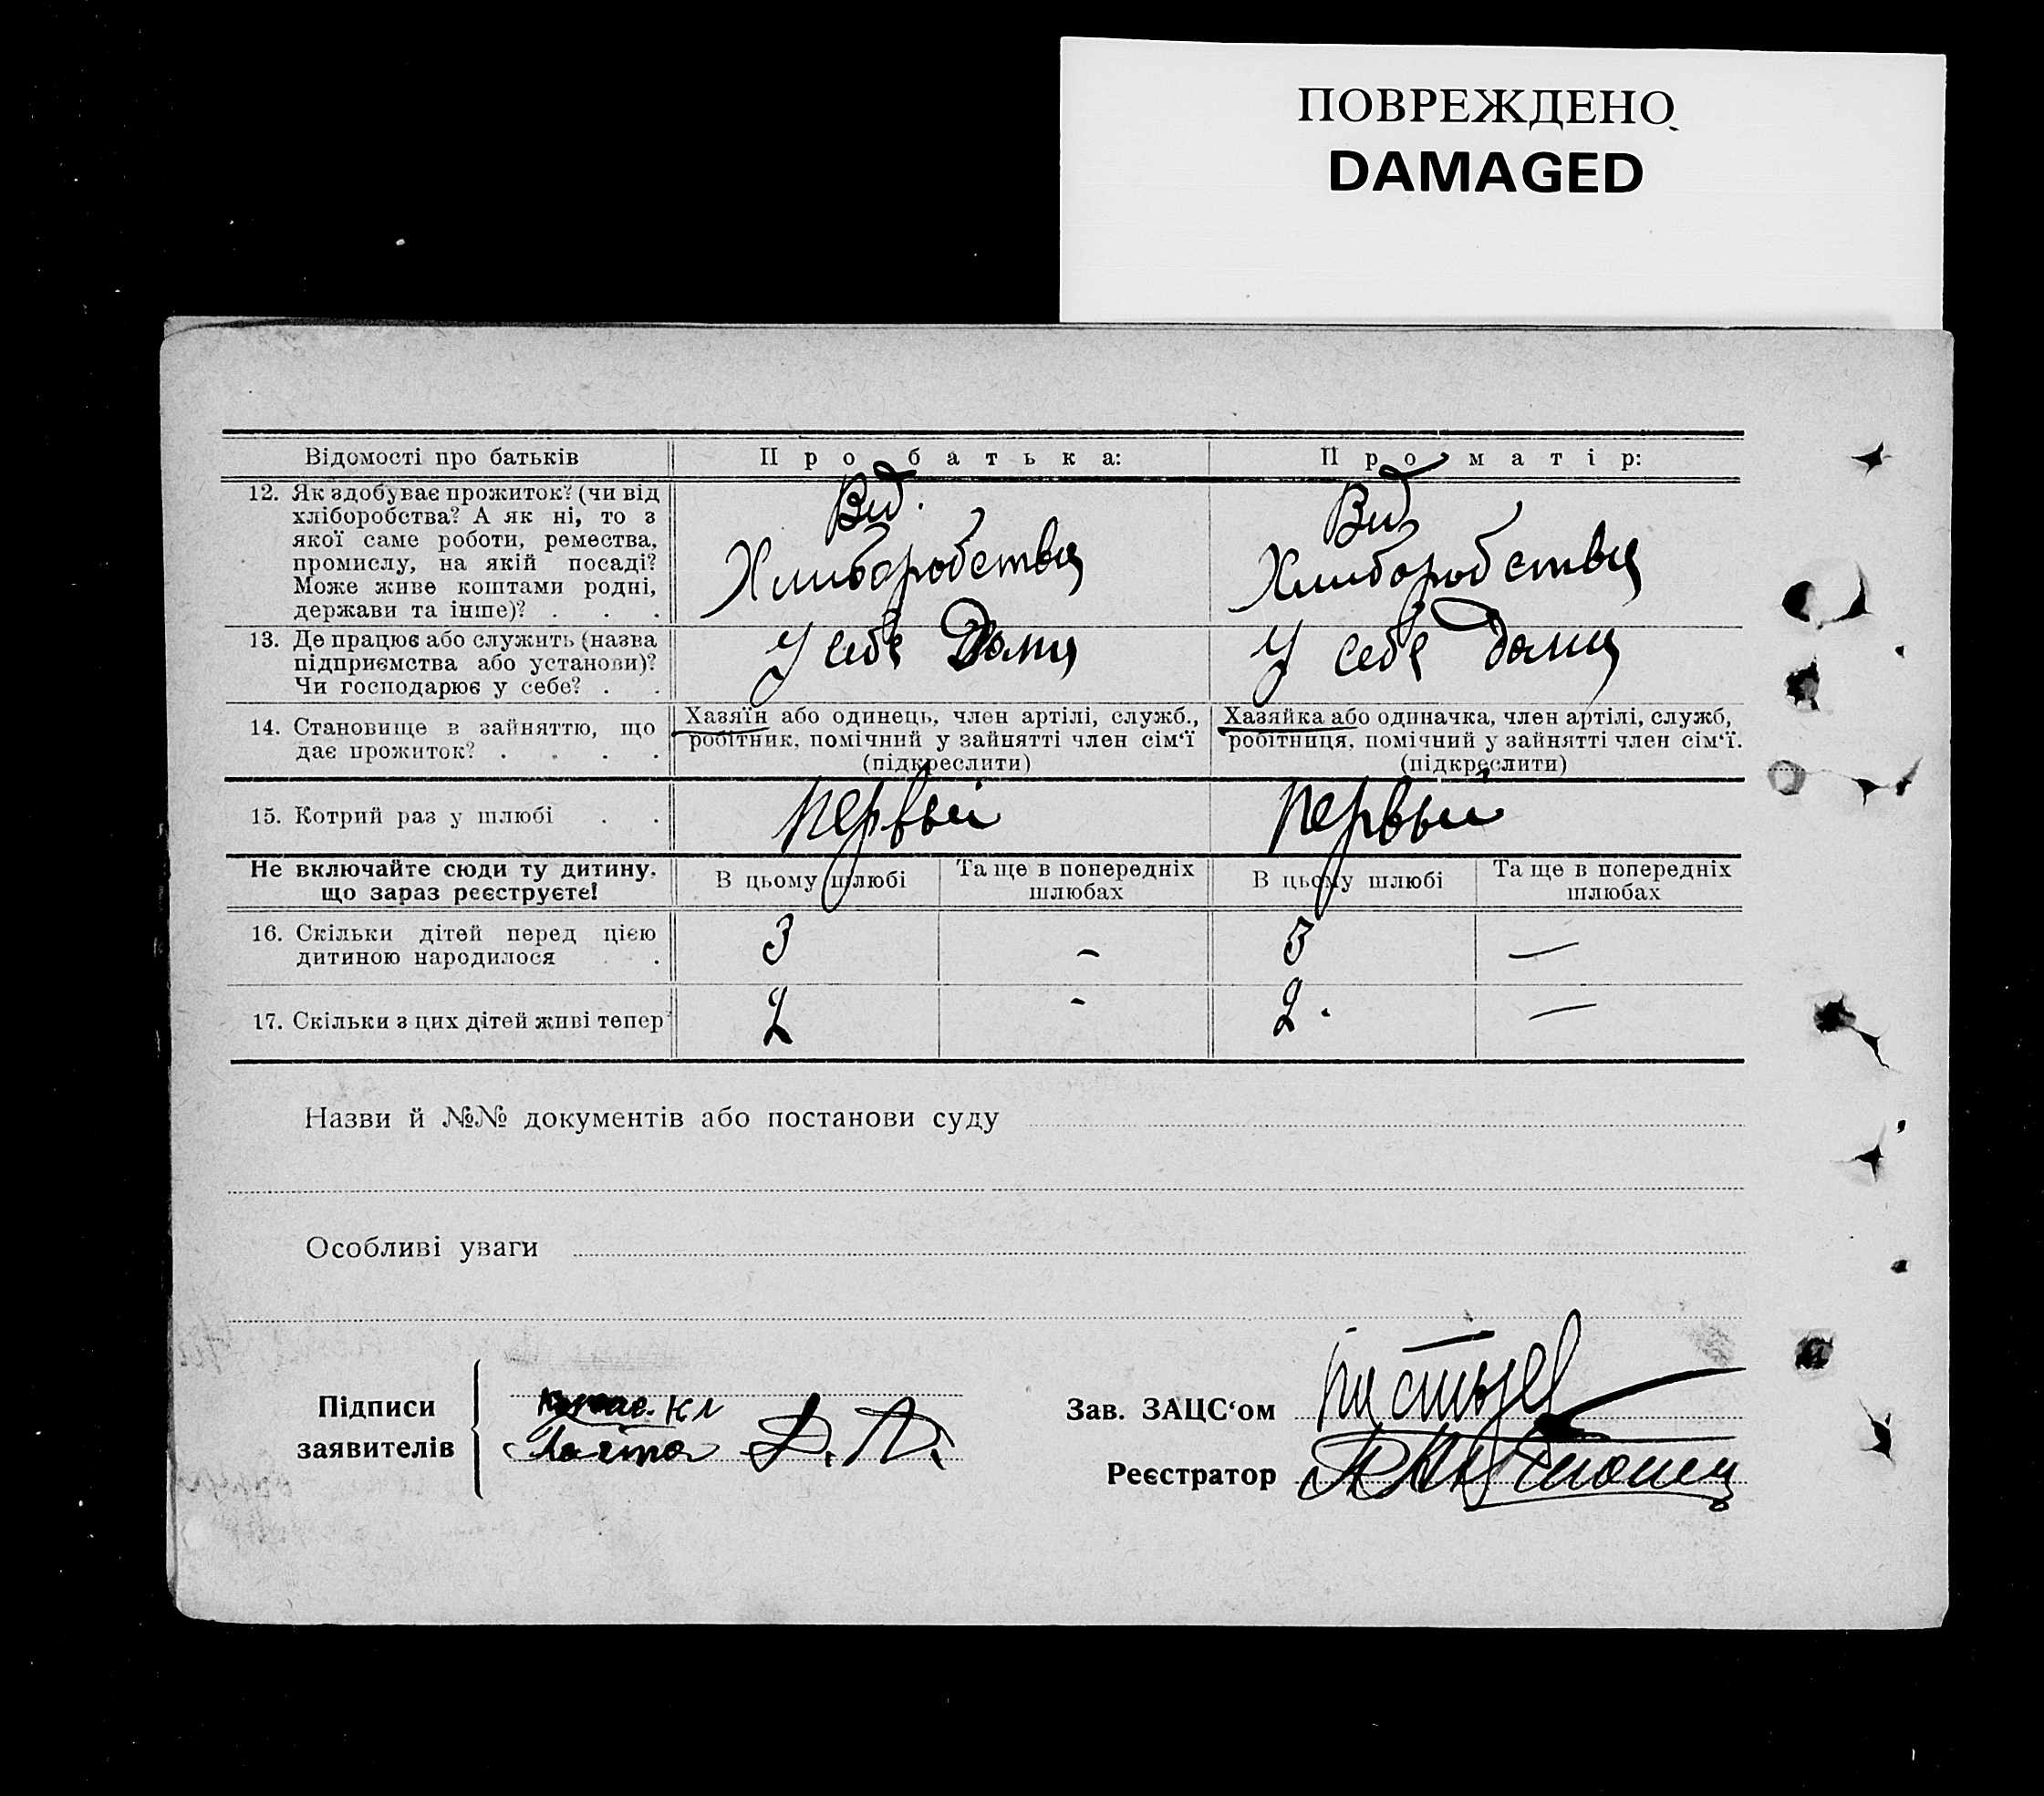 ПОВРЕЖДЕНО
DAMAGED
Відомості про батьків Про батька: Про матір:
12. Як здобуває прожиток? (чи від
хліборобства? А як ні, то з
якої саме роботи, ремества,
промислу, на якій посаді?
Може живе коштами родні,
держави та інше)? . . .
Вид.
Хлиборобства
Вид
Хлиборобства
13. Де працює або служить (назва
підприємства або установи)?
Чи господарює у себе? . .
У себе Дома
У себе дома
14. Становище в зайняттю, що
дає прожиток? . . . .
Хазяїн або одинець, член артілі, служб.,
робітник, помічний у зайнятті член сім‘ї
(підкреслити)
Хазяйка або одиначка, член артілі, служб,
робітниця, помічний у зайнятті член сім‘ї.
(підкреслити)
15. Котрий раз у шлюбі . . первый первый
Не включайте сюди ту дитину,
що зараз реєструєте!
В цьому шлюбі
Та ще в попередніх
шлюбах
В цьому шлюбі
Та ще в попередніх
шлюбах
16. Скільки дітей перед цією
дитиною народилося . .
3 - 3 —
17. Скільки з цих дітей живі тепер 2 - 2. —
Назви й №№ документів або постанови суду
Особливі уваги
Підписи
заявителів
Зав. ЗАЦС‘ом
Реєстратор